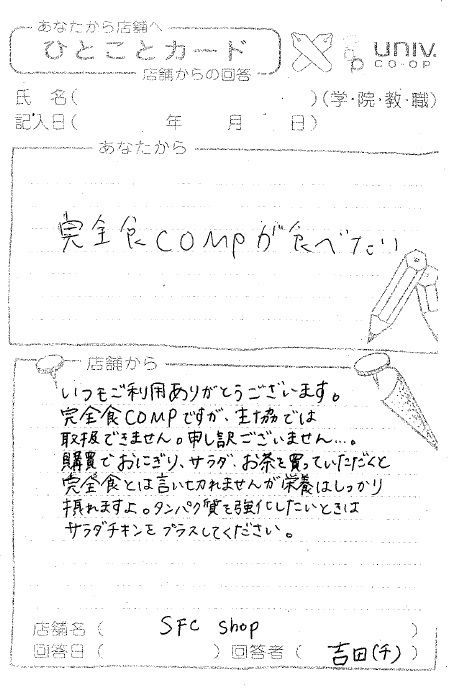 あなたから店舗へ
ひとことカード
店舗からの回答
univ.
CO-OP
氏 名( )(学・院・教・職)
記入日( 年 月 日)
あなたから
完全食COMPが食べたい
店舗から
いつもご利用ありがとうございます。
完全食COMPですが、生協では
取扱できません。申し訳ございません…。
購買でおにぎり、サラダ、お茶を買っていただくと
完全食とは言い切れませんが栄養はしっかり
摂れますよ。タンパク質を強化したいときは
サラダチキンをプラスしてください。
店舗名( SFC shop )
回答日( )回答者( 吉田(千) )